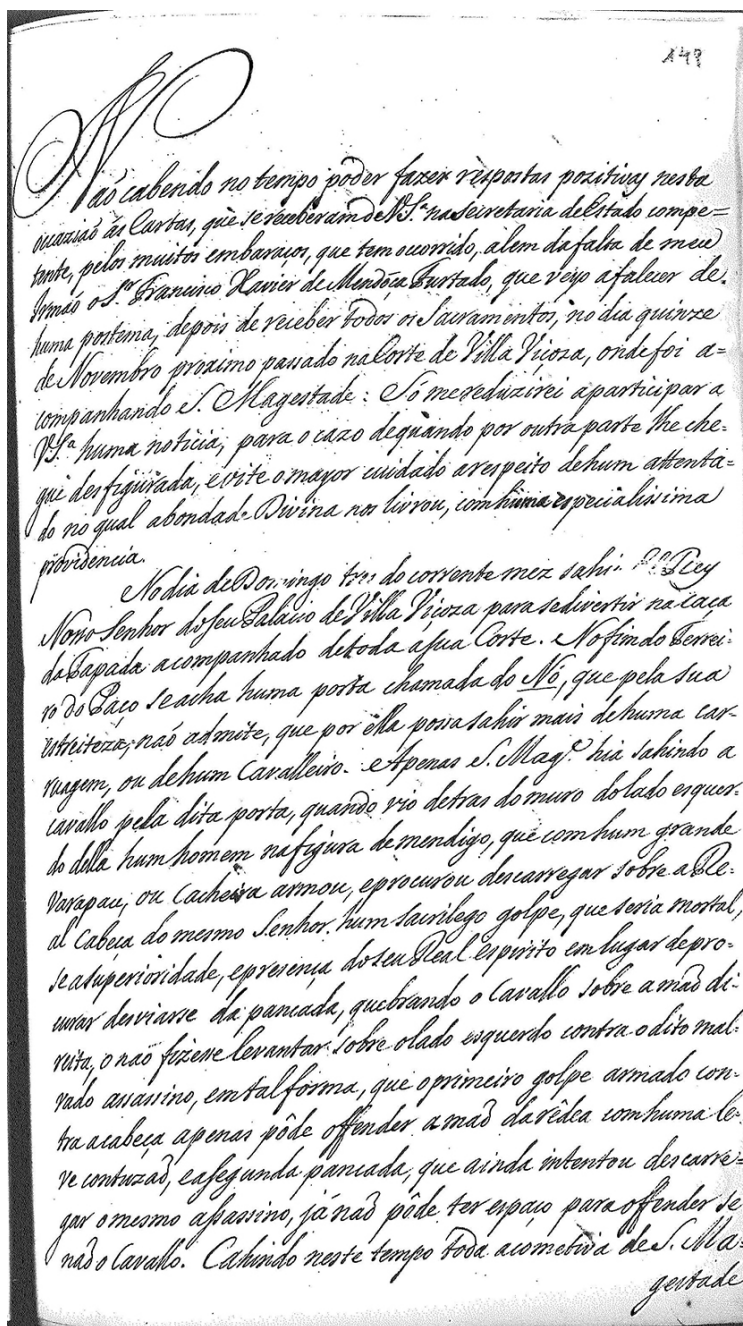 149
Naõ cabendo no tempo pôder fazer respostas pozitivas nesta
occaziaõ ás Cartas, que se receberam de V.S.ª na secretaria de Estado compe=
tente, pelos muitos embaraços, que tem ocorrido, alem da falta de meu
Irmaõ o S.r Francisco Xavier de Mendóça Furtado, que veyo a falecer de
huma postema, depois de receber todos os Sacramentos, no dia quinze
de Novembro proximo passado na Corte de Villa Viçoza, onde foi a=
companhando S. Magestade: Só me reduzirei a participar a
V.S.ª huma noticia, para o cazo de quando por outra parte lhe che=
gue desfigurada, evite o mayor cuidado a respeito de hum attenta=
do no qual a bondade Divina nos livrou, com huma especialissima
providencia.
No dia de Domingo tres do corrente mez sahi El Rey
Nosso Senhor do seu Palacio de Villa Vicoza para se divertir na caça
da Tapada acompanhado de toda a sua Corte. No fim do Terrei=
ro do Paço se acha huma porta chamada do Nó, que pela sua
estreiteza, naõ admite, que por ella possa sahir mais de huma car=
ruagem, ou de hum Cavalleiro. Apenas S. Mag.e hia sahindo a
cavallo pela dita porta, quando vio detras do muro do lado esquer=
do della hum homem na figura de mendigo, que com hum grande
Varapau, ou Cacheira armou, e procurou descarregar sobre a Re=
al Cabeça do mesmo Senhor hum sacrilego golpe, que seria mortal,
se a superioridade, e presença do seu Real espirito em lugar de pro=
curar desviarse da pancada, quebrando o Cavallo sobre a maõ di=
reita, o naõ fizesse levantar sobre o lado esquerdo contra o dito mal=
vado assassino, em tal fórma, que o primeiro golpe armado con=
tra a cabeça apenas pôde offender a maõ da rédea com huma le=
ve contuzaõ, e a segunda pancada, que ainda intentou descarre=
gar o mesmo assassino, já naõ pôde ter espaço para offender se
naõ o Cavallo. Cahindo neste tempo toda a cometiva de S. Ma=
gestade